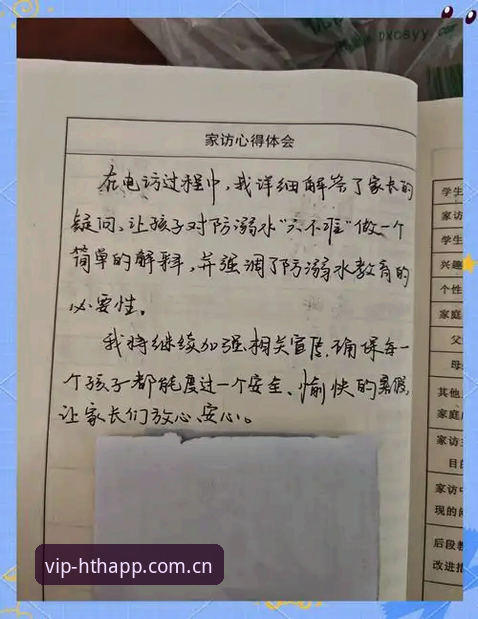 家访心得体会
在电访过程中,我详细解答了家长的
疑问,让孩子对防溺水“六不准”做一个
简单的解释,并强调了防溺水教育的
必要性。
我将继续加强相关宣传,确保每一
个孩子都能度过一个安全、愉快的暑假,
让家长们放心、安心。
学生
家访
学生
兴趣
个性
家庭
父
母
其他
家庭
家访
目的
家访中
现的问
后段教
改进措
vip-hthapp.com.cn